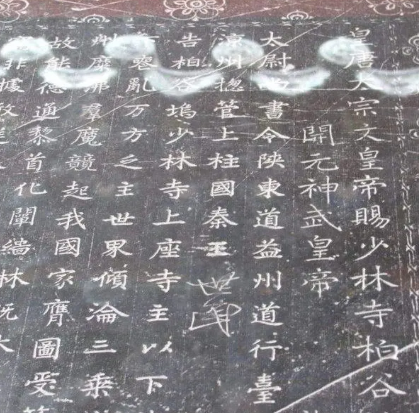 皇唐太宗文皇帝賜少林寺柏谷
開元神武皇帝
太尉尚書令陝東道益州道行臺
涼州揔管上柱國秦王世民
告柏谷塢少林寺上座寺主以下
喪亂万方之主世界傾淪三乘
州糜沸羣魔競起我國家膺圖受
故能德通黎首化闡緇林既
非據